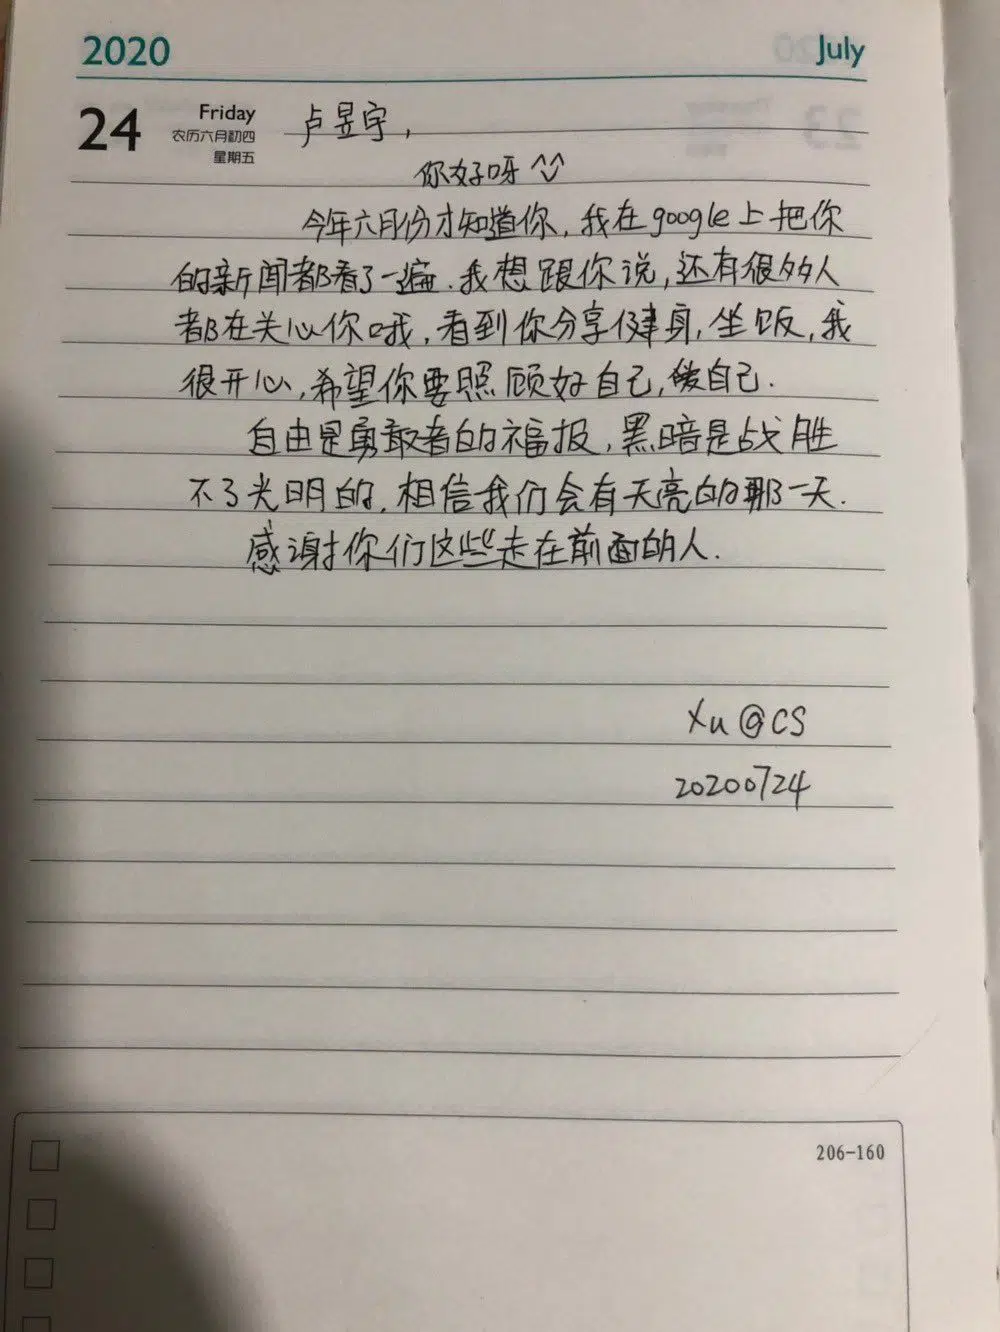 2020
July
24
Friday
农历六月初四
星期五
卢昱宇,
你好呀 ^^
今年六月份才知道你,我在google上把你
的新闻都看了一遍.我想跟你说,还有很多人
都在关心你哦,看到你分享健身,坐饭,我
很开心,希望你要照顾好自己,爱自己.
自由是勇敢者的福报,黑暗是战胜
不了光明的,相信我们会有天亮的那一天.
感谢你们这些走在前面的人.
Xu@CS
20200724
206-160